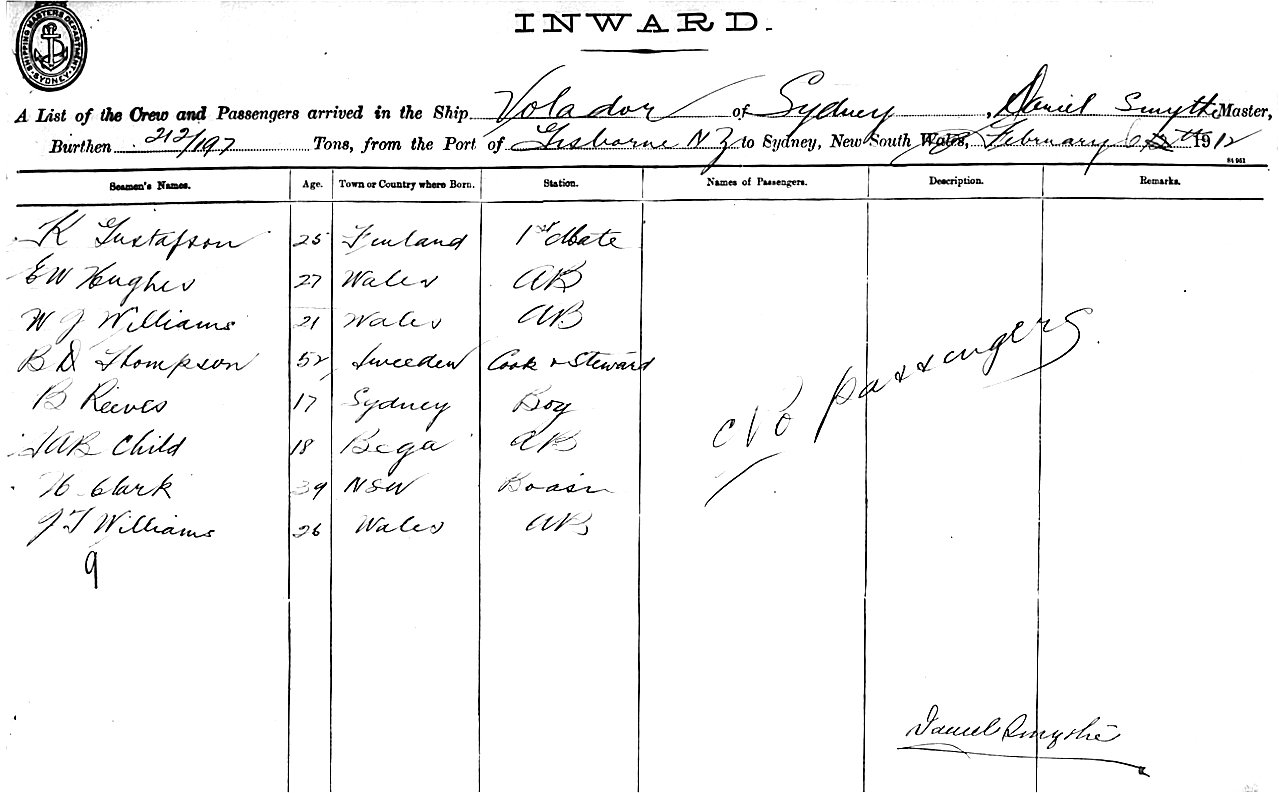 SHIPPING MASTERS DEPARTMENT SYDNEY
INWARD.
A List of the Crew and Passengers arrived in the Ship Volador of Sydney, Daniel Smythe Master,
Burthen 212/197 Tons, from the Port of Gisborne NZ to Sydney, New South Wales, February 1912
84961
Seamen's Names. Age. Town or Country where Born. Station. Names of Passengers. Description. Remarks.
K Gustafson 25 Finland 1st Mate
EW Hughes 27 Wales AB
W J Williams 21 Wales AB
B D Thompson 52 Sweeden Cook & Steward
B Reeves 17 Sydney Boy
AB Child 18 Bega AB
Clark 39 NSW
JT Williams 26 Wales AB
9
No passengers
Daniel Smythe